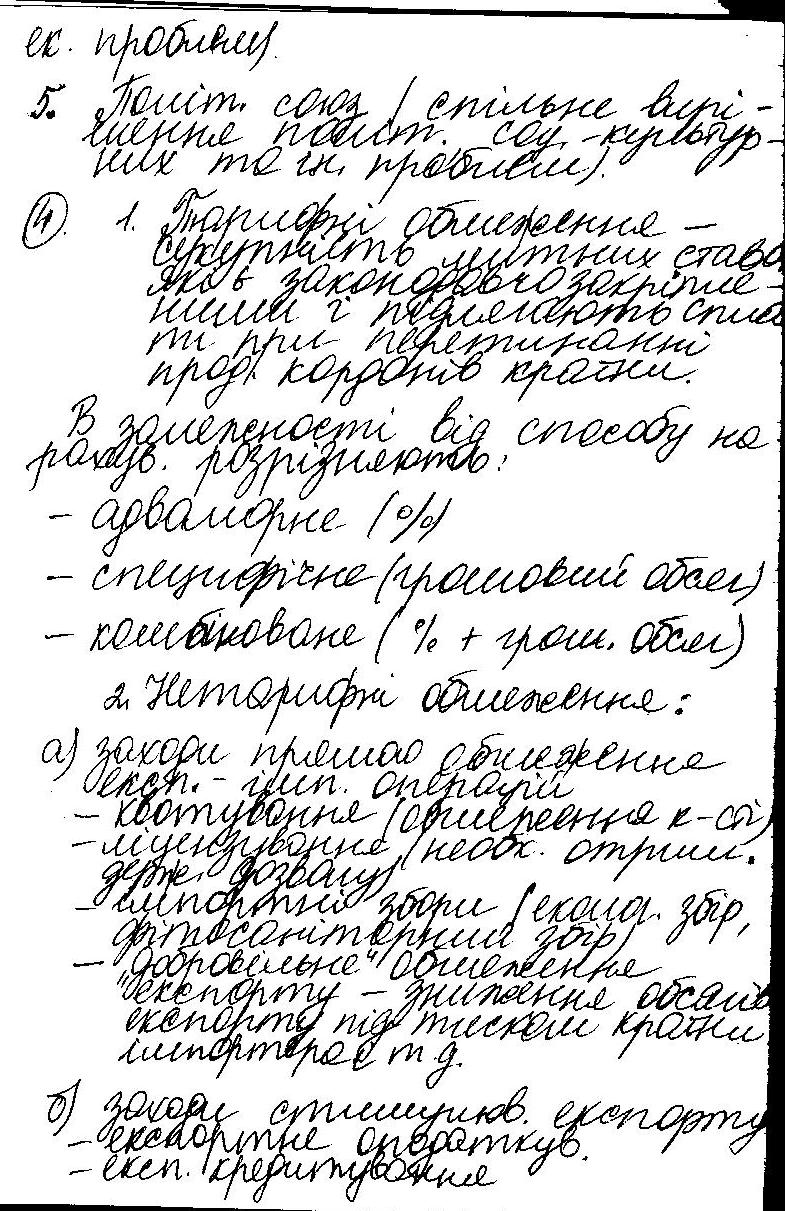 ек. проблем).
5. Політ. союз (спільне вирі-
шення політ., соц.-культур-
них та ін. проблем).
4. 1. Тарифні обмеження –
сукупність митних ставо
які є законодавчо закріпле-
ними і підлягають спла
ти при перетинанні
прод. кордонів країни.
В залежності від способу на
рахув. розрізняють:
– адвалорне (%)
– специфічне (грошовий обсяг)
– комбіноване (% + грош. обсяг)
2. Нетарифні обмеження:
а) заходи прямого обмеження
експ. – імп. операцій
– квотування (обмеження к-сті)
– ліцензування (необх. отрим.
держ. дозволу)
– імпортні збори (еколог. збір,
фітосанітарний збір)
– "добровільне" обмеження
експорту – зниження обсягів
експорту під тиском країни
імпортера і т.д.
б) заходи стимулюв. експорту
– експортне оподаткув.
– експ. кредитування